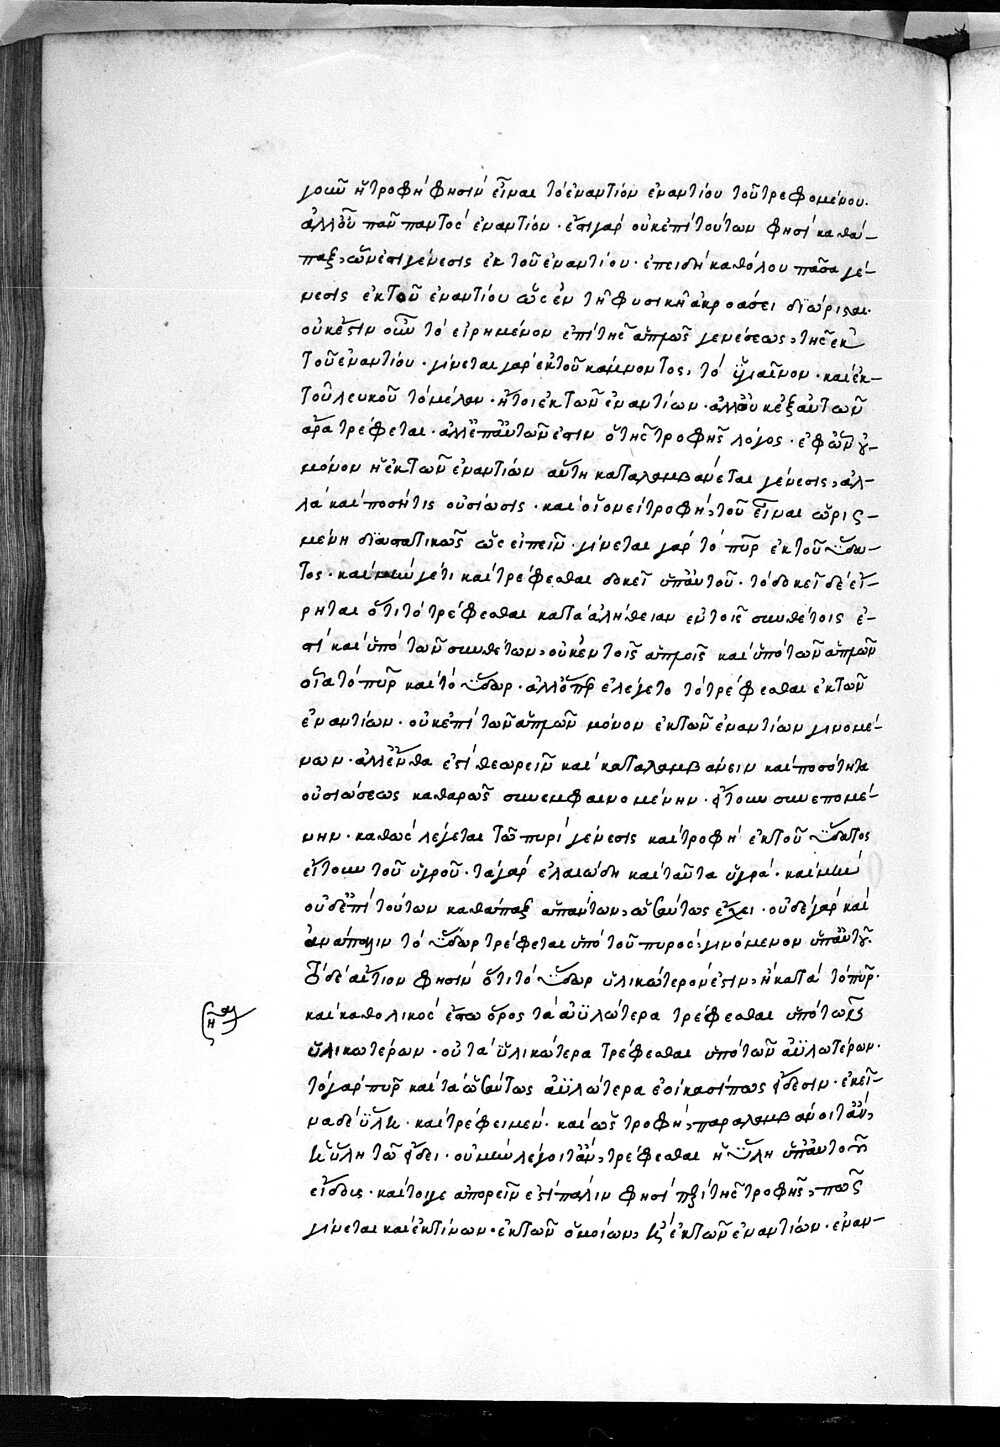 γοῦν ἡ τροφή φησιν εἶναι τὸ ἐναντίον ἐναντίου τοῦ τρεφομένου.
ἀλλ' οὐ πᾶν παντὸς ἐναντίον· ἔστι γὰρ οὐκ ἐπὶ τούτων φησὶ καθά-
παξ, ὧν ἐστι γένεσις ἐκ τοῦ ἐναντίου· ἐπειδὴ καθόλου πᾶσα γέ-
νεσις ἐκ τοῦ ἐναντίου ὡς ἐν τῇ φυσικῇ ἀκροάσει διώρισται.
οὐκ ἔστιν οὖν τὸ εἰρημένον ἐπὶ τῆς ἁπλῶς γενέσεως, τῆς ἐκ
τοῦ ἐναντίου· γίνεται γὰρ ἐκ τοῦ κάμνοντος, τὸ ὑγιαῖνον· καὶ ἐκ
τοῦ λευκοῦ τὸ μέλαν· ἤτοι ἐκ τῶν ἐναντίων· ἀλλ' οὐκ ἐξ αὐτῶν
ἄρα τρέφεται· ἀλλ' ἐπ' αὐτῶν ἐστιν ὁ τῆς τροφῆς λόγος· ἐφ' ὧν οὐ
μόνον ἡ ἐκ τῶν ἐναντίων αὕτη καταλαμβάνεται γένεσις, ἀλ-
λὰ καὶ ποσή τις οὐσίωσις· καὶ οἱονεὶ τροφή, τοῦ εἶναι ὡρισ-
μένη διαστατικῶς ὡς εἰπεῖν· γίνεται γὰρ τὸ πῦρ ἐκ τοῦ ὕδα-
τος· καὶ μὴν γέτι καὶ τρέφεσθαι δοκεῖ ὑπ' αὐτοῦ· τὸ δοκεῖ δὲ εἴ-
ρηται ὅτι τὸ τρέφεσθαι κατὰ ἀλήθειαν ἐν τοῖς συνθέτοις ἐ-
στὶ καὶ ὑπὸ τῶν συνθέτων, οὐκ ἐν τοῖς ἁπλοῖς καὶ ὑπὸ τῶν ἁπλῶν
οἷα τὸ πῦρ καὶ τὸ ὕδωρ· ἀλλ' ὅπερ ἐλέγετο τὸ τρέφεσθαι ἐκ τῶν
ἐναντίων· οὐκ ἐπὶ τῶν ἁπλῶν μόνον ἐκ τῶν ἐναντίων γινομέ-
νων· ἀλλ' ἔνθα ἐστὶ θεωρεῖν καὶ καταλαμβάνειν καὶ ποσότητα
οὐσιώσεως καθαρῶς συνεμφαινομένην· ἤτουν συνεπομέ-
νην· καθὼς λέγεται τῷ πυρὶ γένεσις καὶ τροφὴ ἐκ τοῦ ὕδατος
εἴτουν τοῦ ὑγροῦ· τὰ γὰρ ἐλαιώδη καὶ ταῦτα ὑγρά· καὶ μὴν
οὐδ' ἐπὶ τούτων καθάπαξ ἁπάντων, ὡσαύτως ἔχει· οὐδὲ γὰρ καὶ
ἀνάπαλιν τὸ ὕδωρ τρέφεται ὑπὸ τοῦ πυρός, γινόμενον ὑπ' αὐτοῦ.
Τὸ δὲ αἴτιον φησὶν ὅτι τὸ ὕδωρ ὑλικώτερόν ἐστιν, ἢ κατὰ τὸ πῦρ·
καὶ καθολικὸς ἔστω ὅρος τὰ ἀϋλώτερα τρέφεσθαι ὑπὸ τῶν
ὑλικωτέρων· οὐ τὰ ὑλικώτερα τρέφεσθαι ὑπὸ τῶν ἀϋλωτέρων·
τὸ γὰρ πῦρ καὶ τὰ ὡσαύτως ἀϋλώτερα ἐοίκασί πως εἴδεσιν· ἐκεῖ-
να δὲ ὕλη· καὶ τρέφει μέν· καὶ ὡς τροφή, παραλαμβάνοιτ' ἄν,
καὶ ὕλη τῷ εἴδει· οὐ μὴν λέγοιτ' ἄν, τρέφεσθαι ἡ ὕλη ὑπ' αὐτοῦ τοῦ
εἴδους· καίτοι γε ἀπορεῖν ἔστι πάλιν φησὶ περὶ τῆς τροφῆς, πῶς
γίνεται καὶ ἐκ τίνων· ἐκ τῶν ὁμοίων, ἢ ἐκ τῶν ἐναντίων· ἐναν-